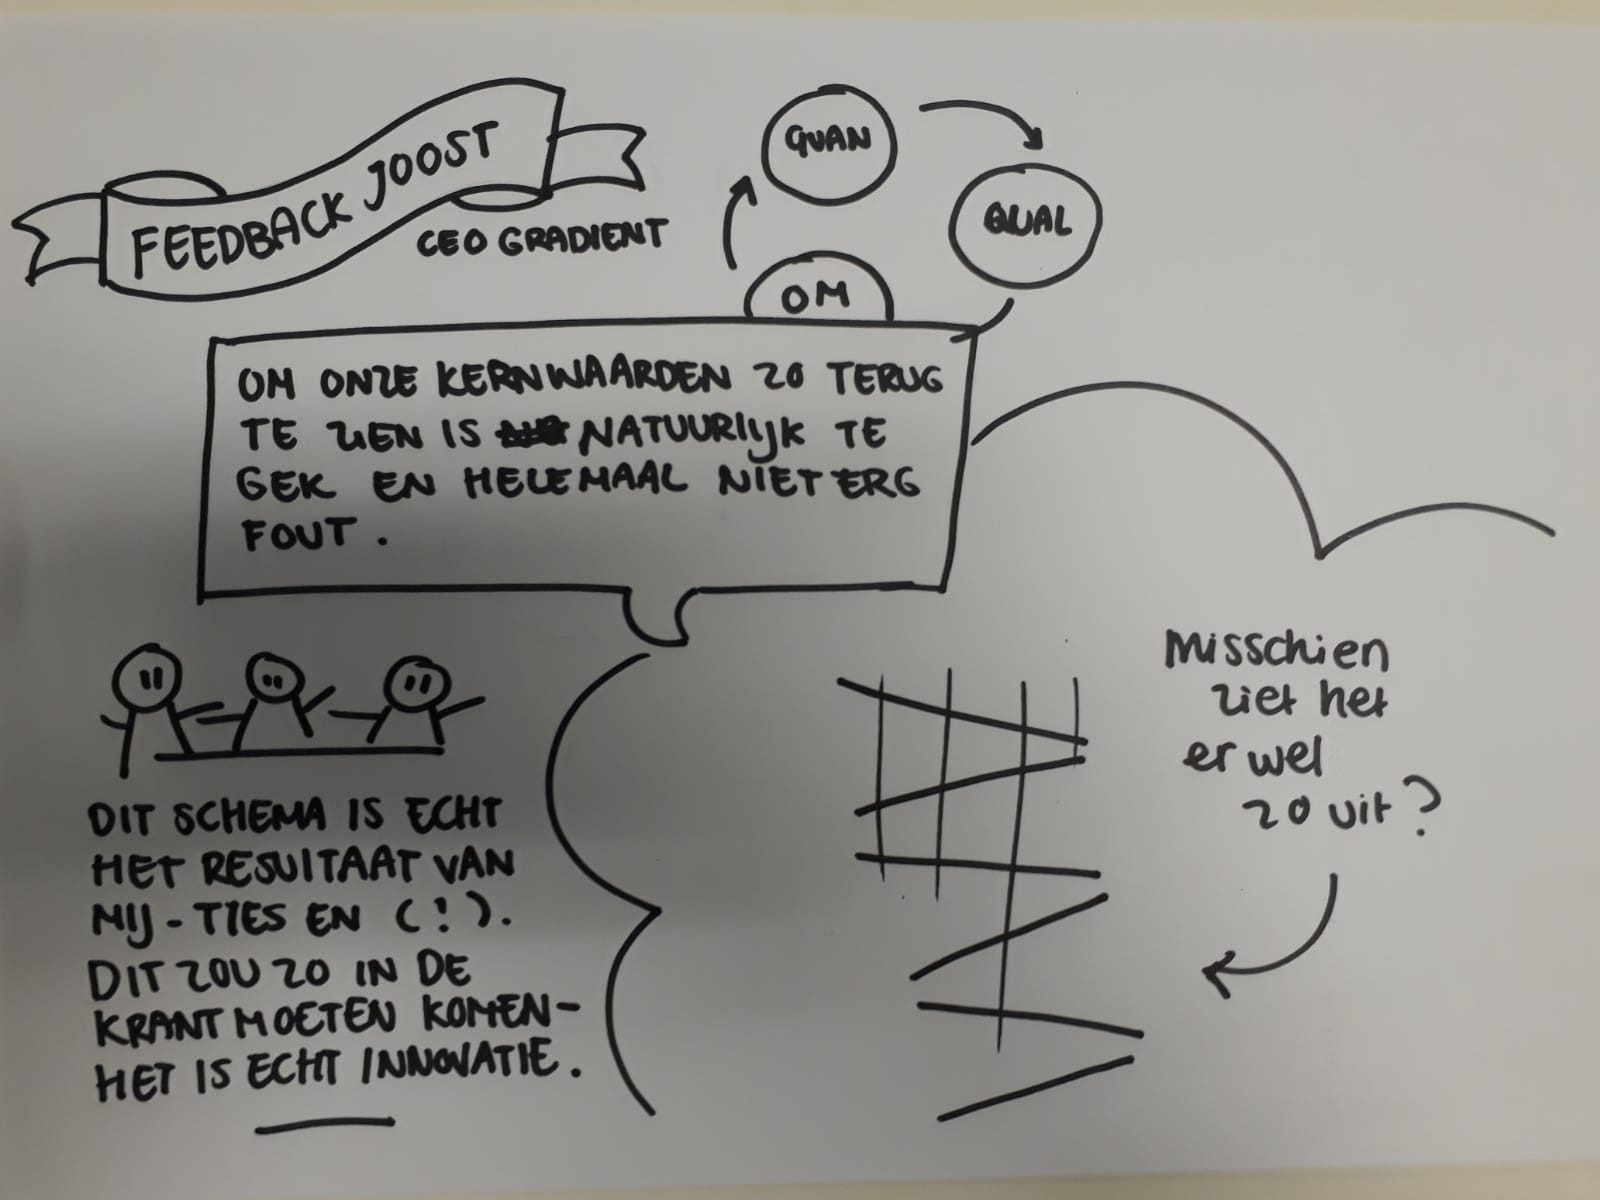 FEEDBACK JOOST
CEO GRADIENT
QUAN
QUAL
OM
OM ONZE KERNWAARDEN ZO TERUG
TE ZIEN IS NATUURLIJK TE
GEK EN HELEMAAL NIET ERG
FOUT.
DIT SCHEMA IS ECHT
HET RESULTAAT VAN
MIJ-TIES EN (!).
DIT ZOU ZO IN DE
KRANT MOETEN KOMEN-
HET IS ECHT INNOVATIE.
Misschien
ziet het
er wel
zo uit?